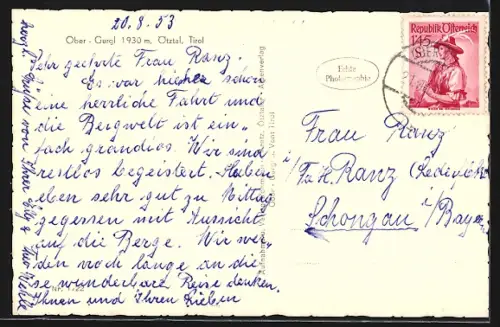 20.8.53
Ober-Gurgl 1930 m, Ötztal, Tirol
Sehr geehrte Frau Ranz.
Es war bisher schon
eine herrliche Fahrt und
die Bergwelt ist ein-
fach grandios. Wir sind
restlos begeistert. Haben
eben sehr gut zu Mittag
gegessen mit Aussicht
auf die Berge. Wir wer-
den noch lange an die-
se wunderbare Reise denken.
Ihnen und Ihren Lieben
Grüße von Ihrer
Echte
Photographie
Republik Österreich
1.45
Frau Ranz
i/Fa. K. Ranz
Schongau i/Bayern